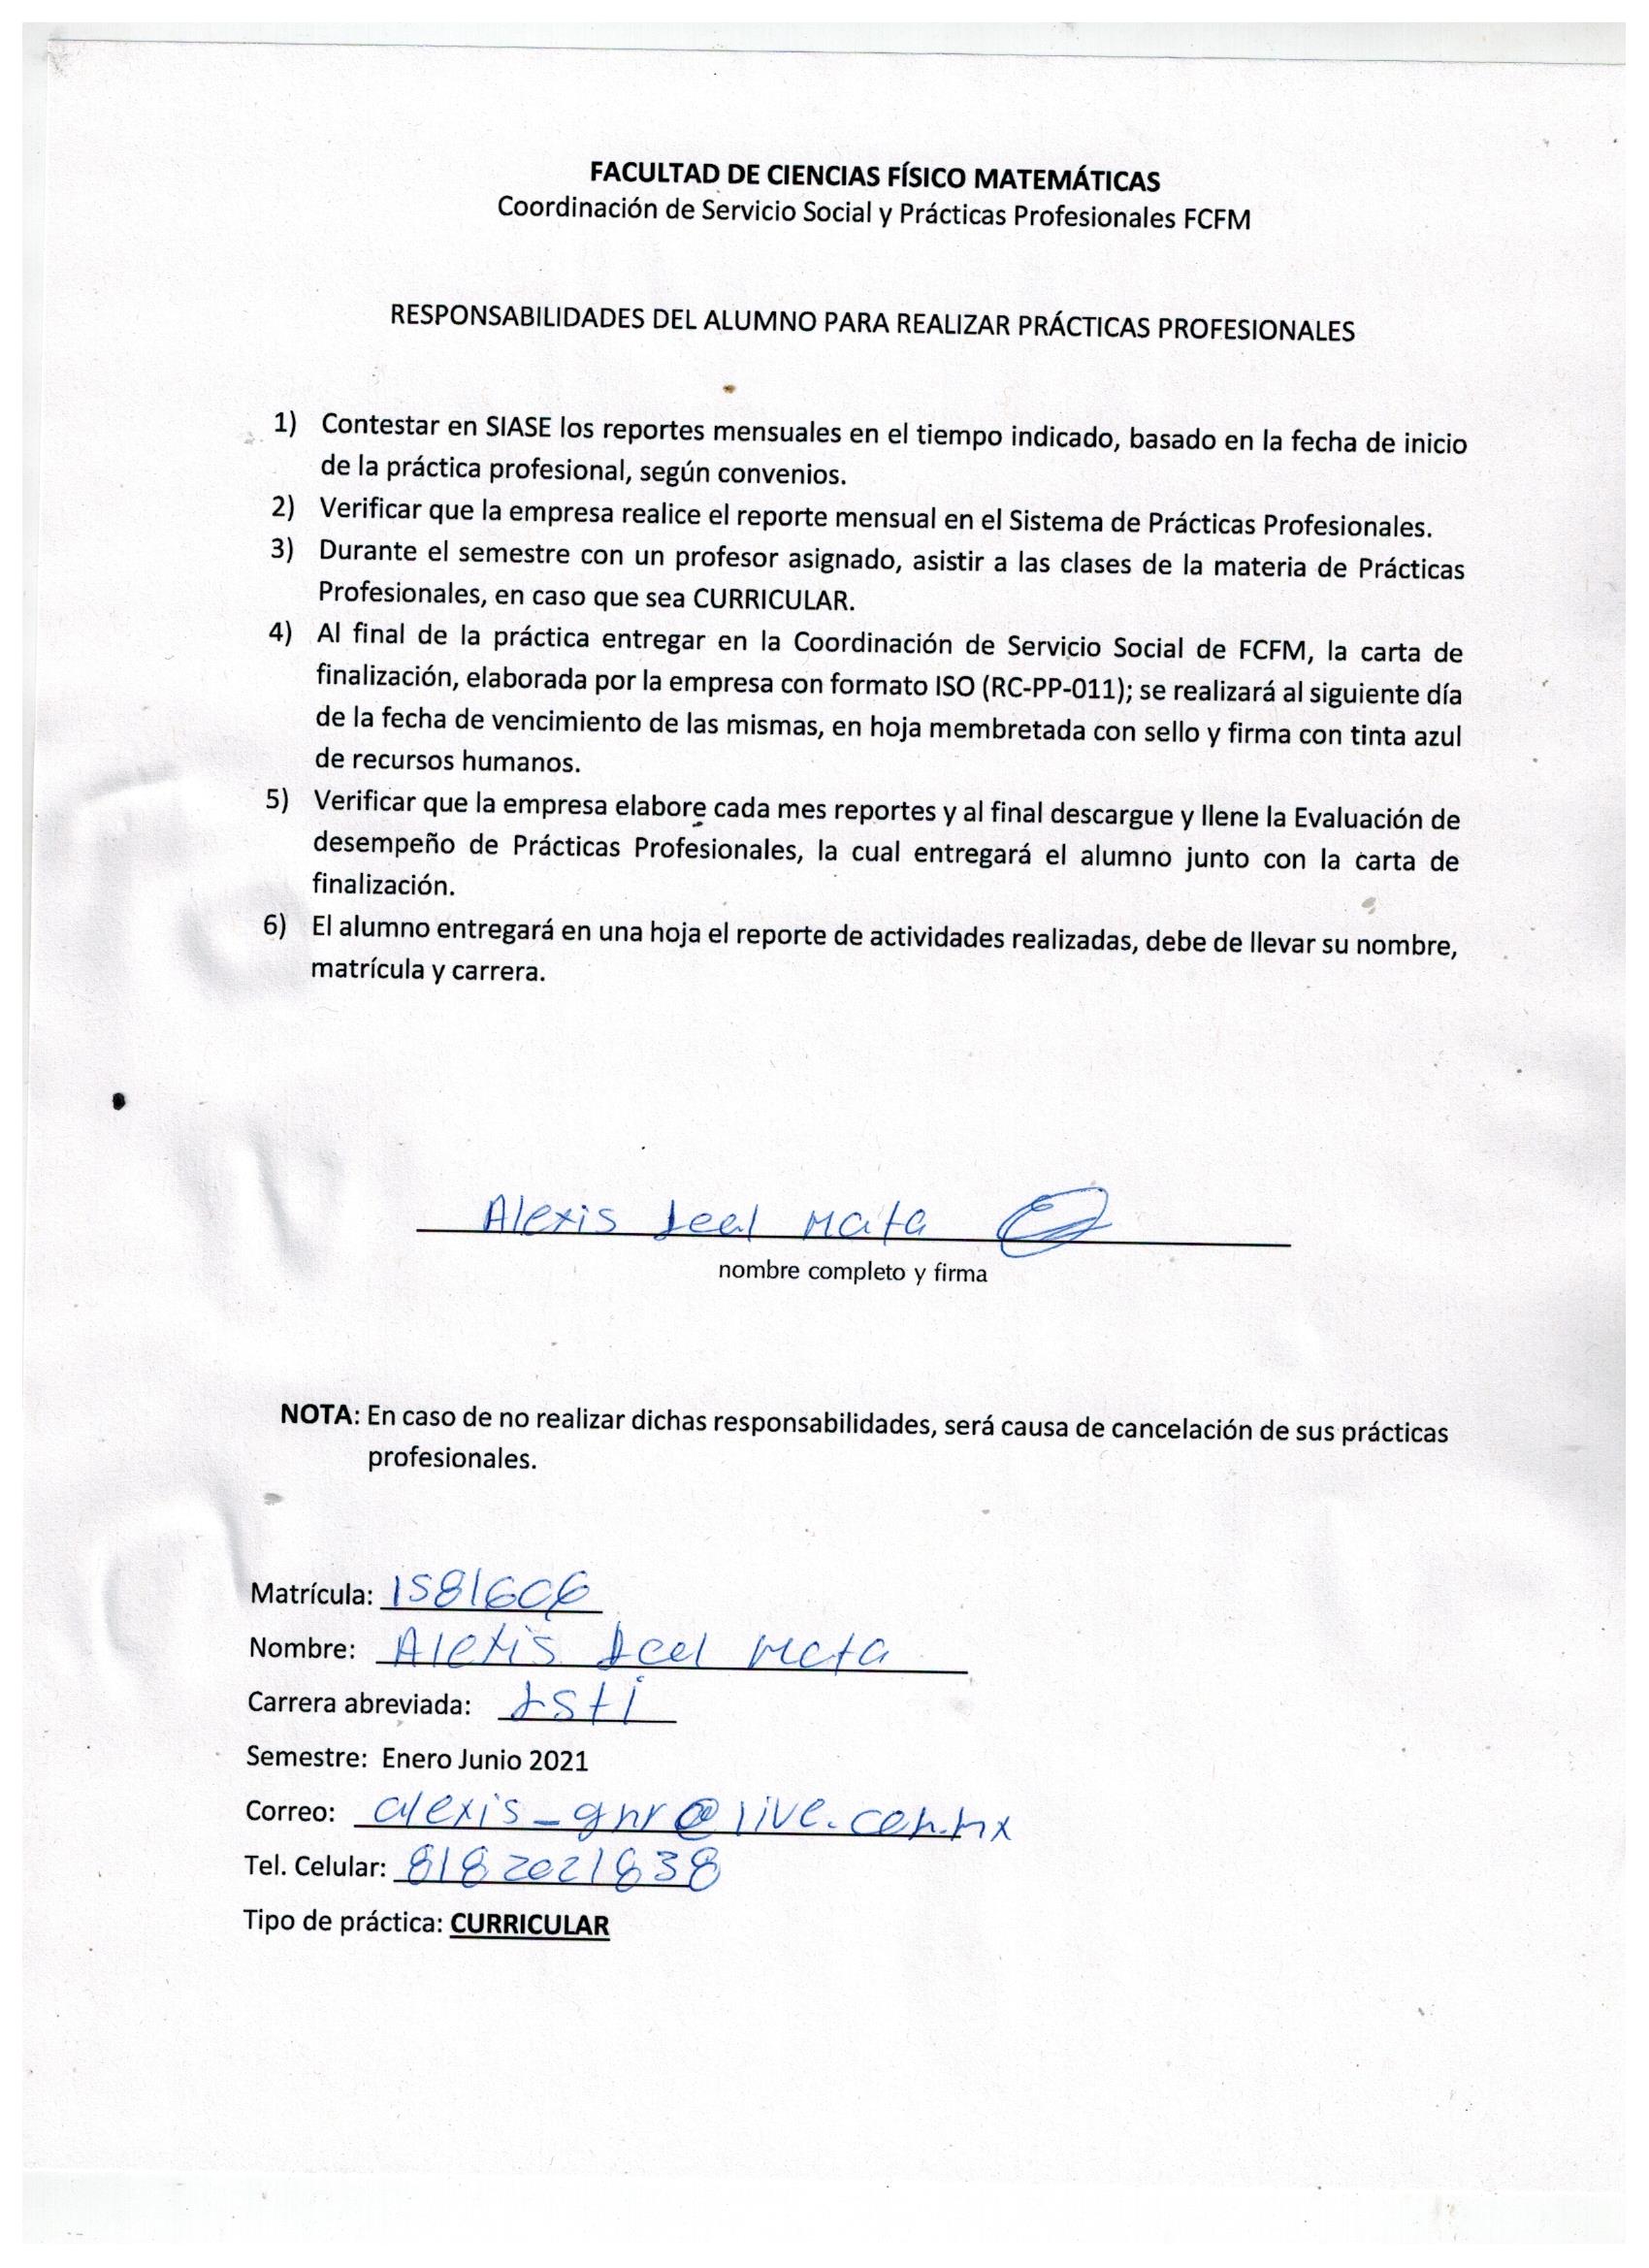 FACULTAD DE CIENCIAS FÍSICO MATEMÁTICAS
Coordinación de Servicio Social y Prácticas Profesionales FCFM
RESPONSABILIDADES DEL ALUMNO PARA REALIZAR PRÁCTICAS PROFESIONALES
1) Contestar en SIASE los reportes mensuales en el tiempo indicado, basado en la fecha de inicio
de la práctica profesional, según convenios.
2) Verificar que la empresa realice el reporte mensual en el Sistema de Prácticas Profesionales.
3) Durante el semestre con un profesor asignado, asistir a las clases de la materia de Prácticas
Profesionales, en caso que sea CURRICULAR.
4) Al final de la práctica entregar en la Coordinación de Servicio Social de FCFM, la carta de
finalización, elaborada por la empresa con formato ISO (RC-PP-011); se realizará al siguiente día
de la fecha de vencimiento de las mismas, en hoja membretada con sello y firma con tinta azul
de recursos humanos.
5) Verificar que la empresa elabore cada mes reportes y al final descargue y llene la Evaluación de
desempeño de Prácticas Profesionales, la cual entregará el alumno junto con la carta de
finalización.
6) El alumno entregará en una hoja el reporte de actividades realizadas, debe de llevar su nombre,
matrícula y carrera.
Alexis Leal Mata
nombre completo y firma
NOTA: En caso de no realizar dichas responsabilidades, será causa de cancelación de sus prácticas
profesionales.
Matrícula: 1581606
Nombre: Alexis Leal Mata
Carrera abreviada: LSTI
Semestre: Enero Junio 2021
Correo: alexis_gnr@live.com.mx
Tel. Celular: 8182021838
Tipo de práctica: CURRICULAR